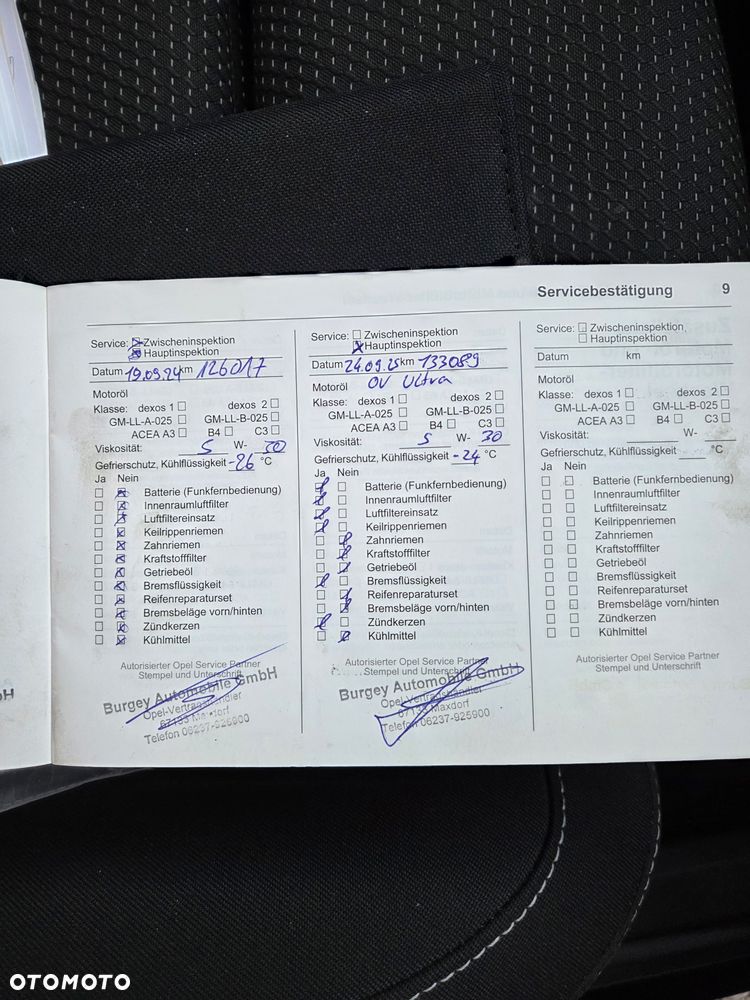 Servicebestätigung 9
Service: Zwischeninspektion
Hauptinspektion
Datum 19.09.24 km 126017
Motoröl
Klasse: dexos 1 dexos 2
GM-LL-A-025 GM-LL-B-025
ACEA A3 B4 C3
Viskosität: 5 W- 30
Gefrierschutz, Kühlflüssigkeit -26 °C
Ja Nein
Batterie (Funkfernbedienung)
Innenraumluftfilter
Luftfiltereinsatz
Keilrippenriemen
Zahnriemen
Kraftstofffilter
Getriebeöl
Bremsflüssigkeit
Reifenreparaturset
Bremsbeläge vorn/hinten
Zündkerzen
Kühlmittel
Autorisierter Opel Service Partner
Stempel und Unterschrift
Burgey Automobile GmbH
Opel-Vertragshändler
67133 Maxdorf
Telefon 06237-925900
Service: Zwischeninspektion
Hauptinspektion
Datum 24.09.25 km 133089
Motoröl OV Ultra
Klasse: dexos 1 dexos 2
GM-LL-A-025 GM-LL-B-025
ACEA A3 B4 C3
Viskosität: 5 W- 30
Gefrierschutz, Kühlflüssigkeit -24 °C
Ja Nein
Batterie (Funkfernbedienung)
Innenraumluftfilter
Luftfiltereinsatz
Keilrippenriemen
Zahnriemen
Kraftstofffilter
Getriebeöl
Bremsflüssigkeit
Reifenreparaturset
Bremsbeläge vorn/hinten
Zündkerzen
Kühlmittel
Autorisierter Opel Service Partner
Stempel und Unterschrift
Burgey Automobile GmbH
Opel-Vertragshändler
67133 Maxdorf
Telefon 06237-925900
Service: Zwischeninspektion
Hauptinspektion
Datum km
Motoröl
Klasse: dexos 1 dexos 2
GM-LL-A-025 GM-LL-B-025
ACEA A3 B4 C3
Viskosität: W-
Gefrierschutz, Kühlflüssigkeit °C
Ja Nein
Batterie (Funkfernbedienung)
Innenraumluftfilter
Luftfiltereinsatz
Keilrippenriemen
Zahnriemen
Kraftstofffilter
Getriebeöl
Bremsflüssigkeit
Reifenreparaturset
Bremsbeläge vorn/hinten
Zündkerzen
Kühlmittel
Autorisierter Opel Service Partner
Stempel und Unterschrift
OTOMOTO